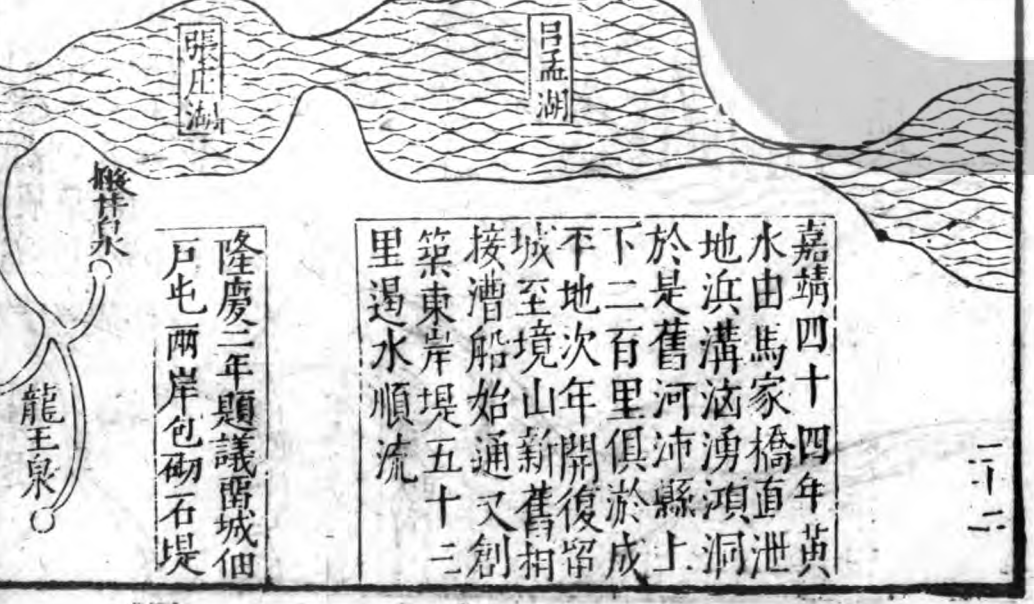 二十二
呂孟湖
嘉靖四十四年黃
水由馬家橋直泄
地浜溝洶湧澒洞
於是舊河沛縣上
下二百里俱淤成
平地次年開復留
城至境山新舊相
接漕船始通又創
築東岸堤五十三
里遏水順流
張庄湖
隆慶二年題議畱城佃
戶屯兩岸包砌石堤
龍王泉